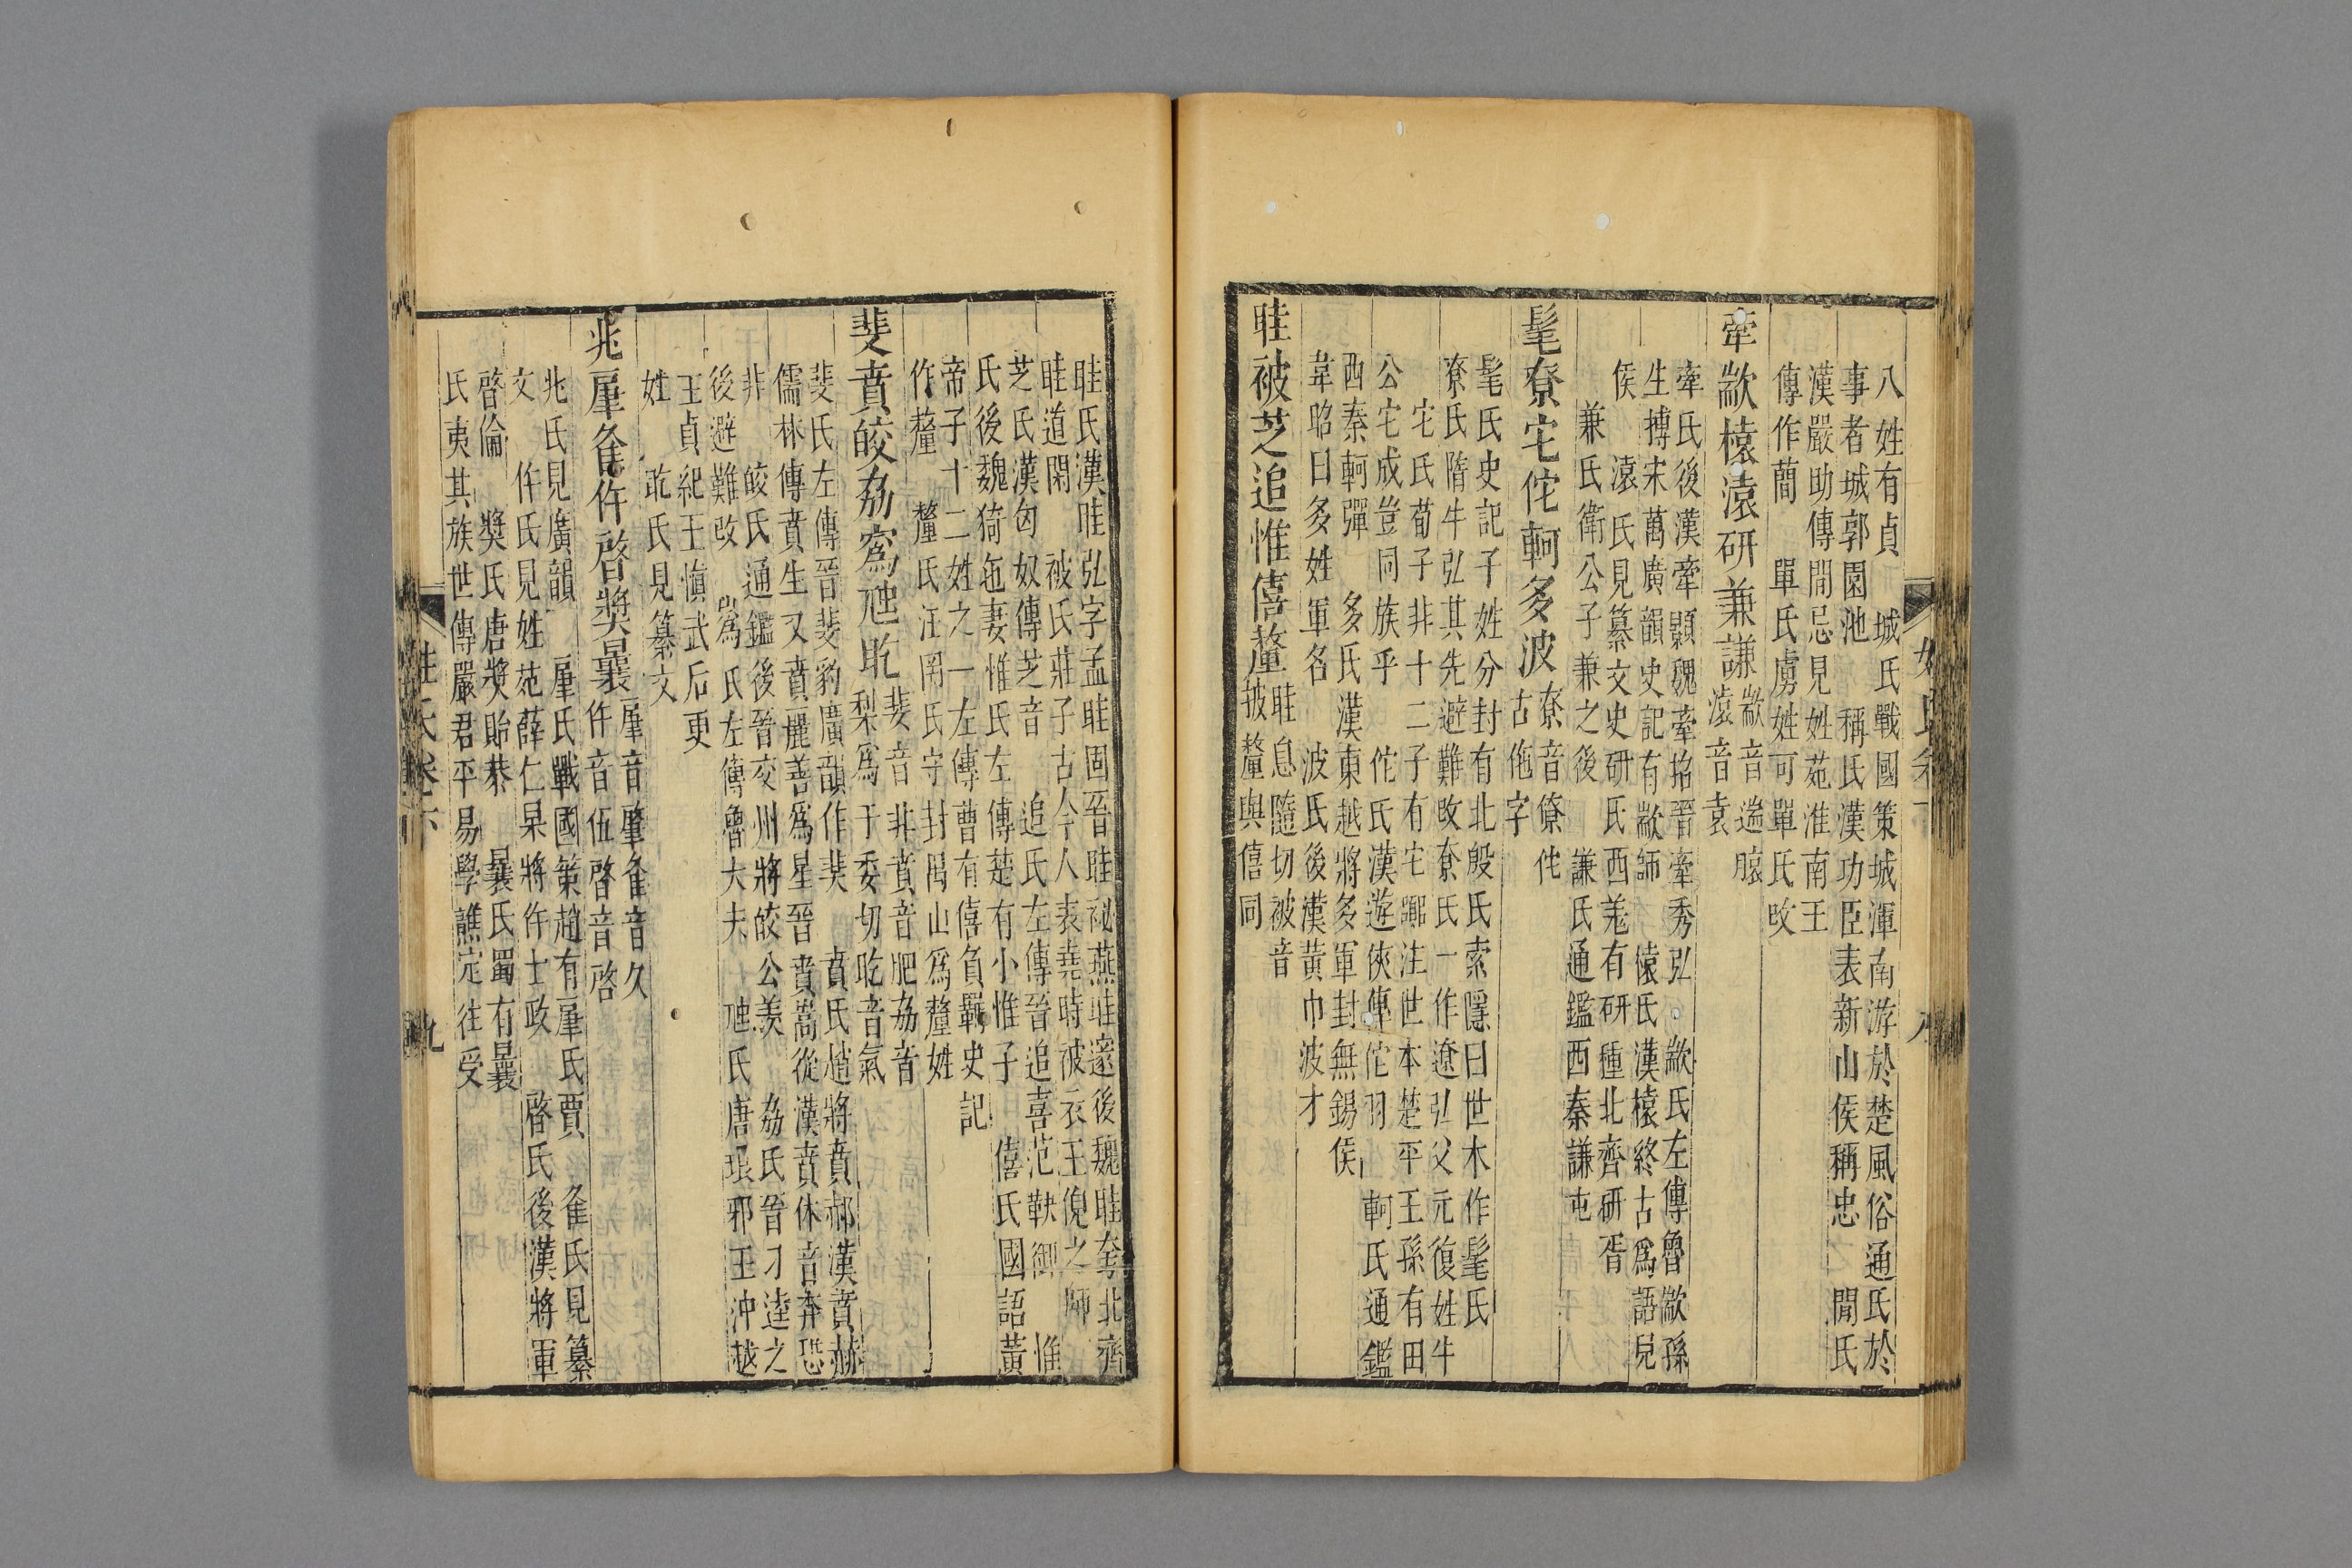 八姓有貞　城氏戰國策城渾南游於楚風俗通氏於
事者城郭園池　稱氏漢功臣表新山侯稱忠　閒氏
漢嚴助傳閒忌見姓苑淮南王
傳作蕳　單氏虜姓可單氏改
牽歜榬溒研兼謙
歜音遄
溒音袁
牽氏後漢牽顥魏牽招晉牽秀弘　歜氏左傳魯歜孫
生搏宋萬廣韻史記有歜師　榬氏漢榬終古爲語兒
侯　溒氏見纂文史研氏西羗有研種北齊研胥
兼氏衛公子兼之後　謙氏通鑑西秦謙屯
髦尞宅佗軻多波
尞音僚佗
古佗字
髦氏史記子姓分封有北殷氏索隱曰世本作髦氏
尞氏隋牛弘其先避難改尞氏一作遼弘父元復姓牛
宅氏荀子非十二子有宅嚻注世本楚平王孫有田
公宅成豈同族乎　佗氏漢遊俠傳佗羽　軻氏通鑑
西秦軻彈　多氏漢東越將多軍封無錫侯
韋昭曰多姓軍名　波氏後漢黃巾波才
眭被芝追惟僖釐
眭息隨切被音
披釐與僖同
姓氏卷　八
眭氏漢眭弘字孟眭固晉眭祕燕眭邃後魏眭夸北齊
眭道閑　被氏莊子古今人表堯時被衣王倪之師
芝氏漢匈奴傳芝音　追氏左傳晉追喜范鞅御　惟
氏後魏猗㐌妻惟氏左傳楚有小惟子　僖氏國語黃
帝子十二姓之一左傳曹有僖負羈史記
作釐　釐氏汪罔氏守封禺山爲釐姓
斐賁皎劦寪虺
斐音非賁音肥劦音
梨寪于委切音氣
斐氏左傳晉斐豹廣韻作　賁氏趙將賁郝漢賁赫
儒林傳賁生又賁麗善爲星晉賁嵩從漢賁休音奔恐
非　皎氏通鑑後晉交州將皎公羨　劦氏晉刁逵之
後避難改　寪氏左傳魯大夫　虺氏唐琅邪王沖越
王貞紀王愼武后更
姓　氏見纂文
兆肈仵啓奬曩
肈音肇　音久
仵音伍啓音啓
兆氏見廣韻　肈氏戰國策趙有肈氏賈　氏見纂
文　仵氏見姓苑薛仁杲將仵士政　啓氏後漢將軍
啓倫　奬氏唐奬貽恭　曩氏蜀有曩
氏夷其族世傳嚴君平易學譙定往受
姓氏卷六　九